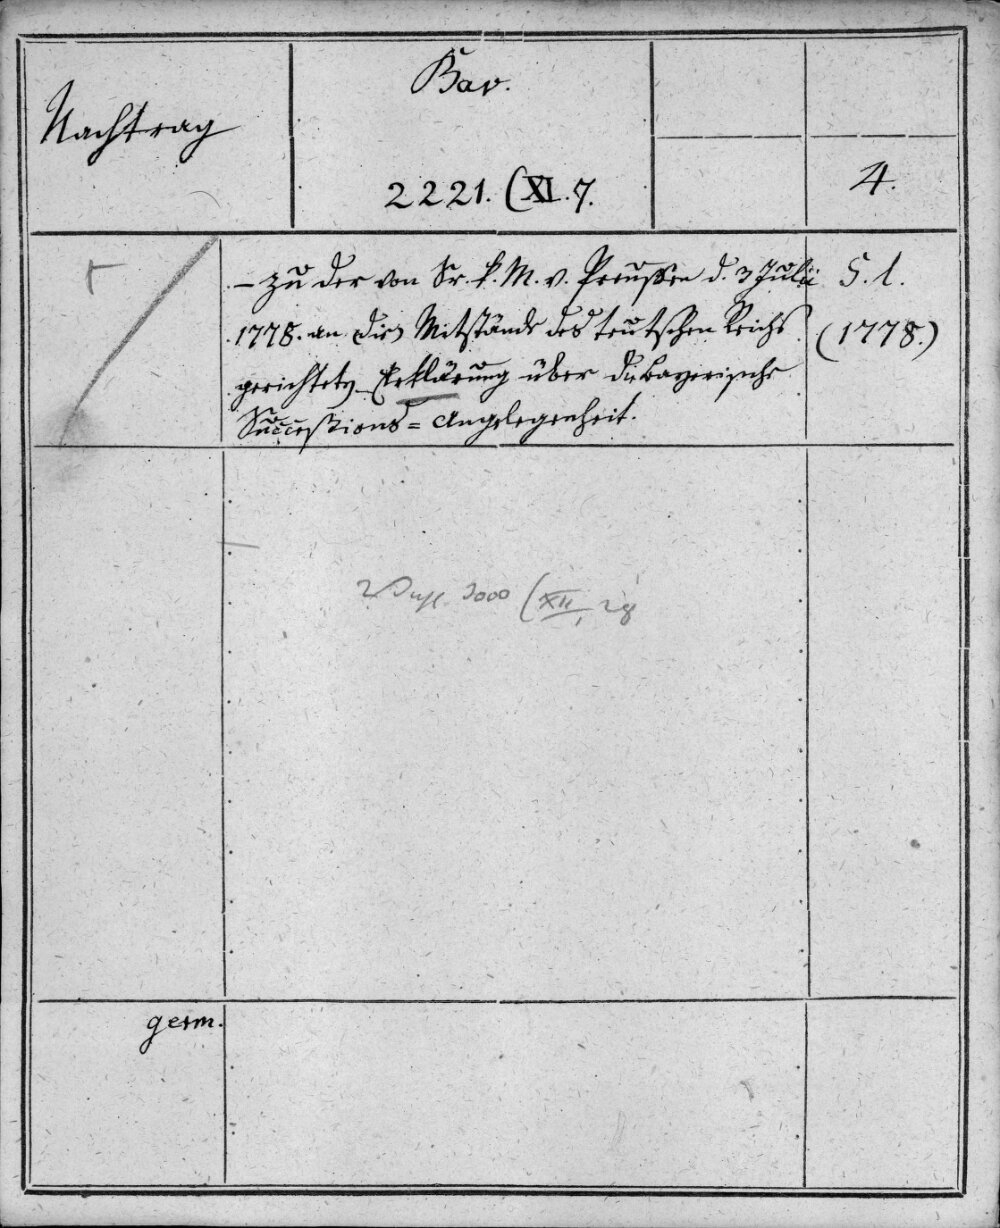 Nachtrag
Bav.
2221. (XI. 7.
4.
– zu der von Sr. k. M. v. Preußen d. 3 Julii
1778. an die Mitstände des teutschen Reichs
gerichteten Erklärung über die bayerische
Successions = Angelegenheit.
S. l.
(1778.)
2 Dupl. 3000 (XII, 28
germ.